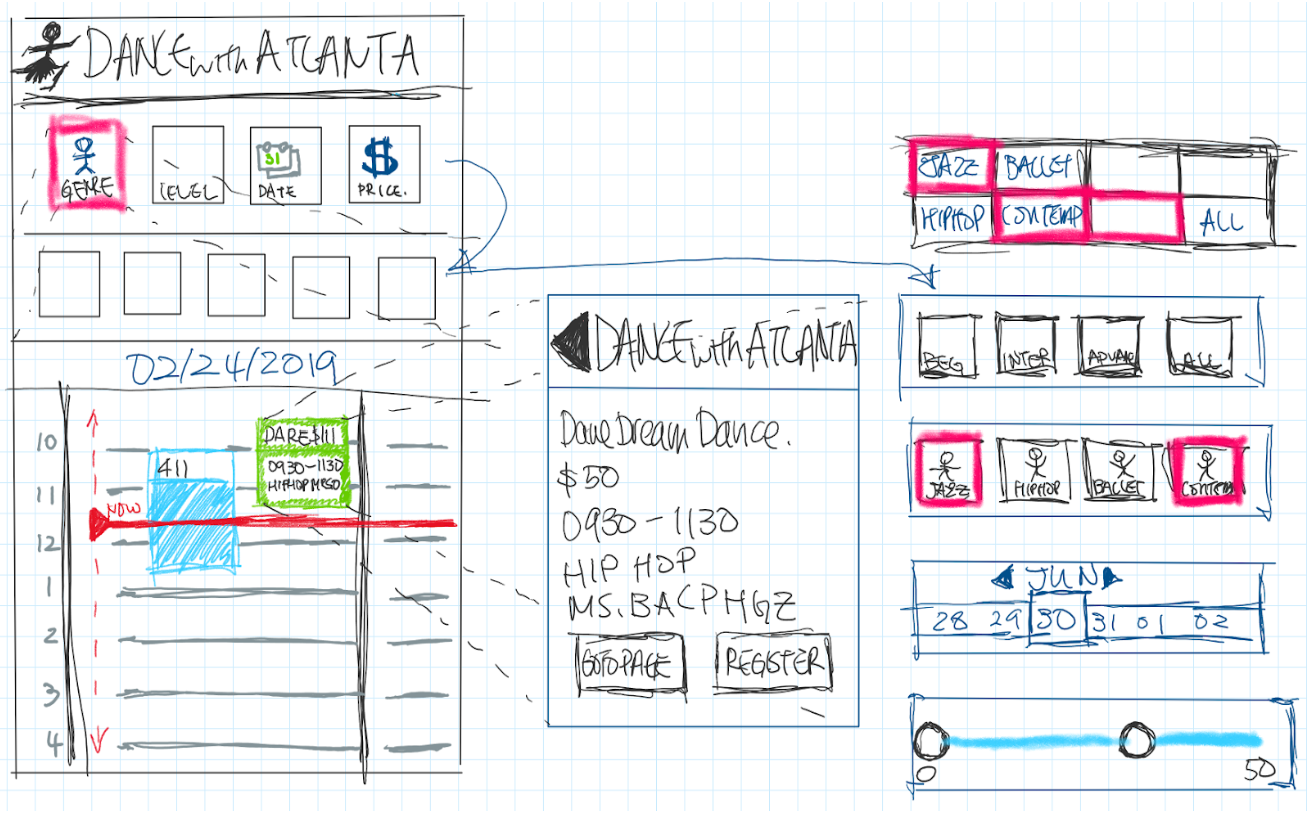 DANCE with ATLANTA
GENRE
LEVEL
31
DATE
$
PRICE.
02/24/2019
10
11
12
1
2
3
4
NOW
411
DARE $111
0930-1130
HIPHOP
DANCE with ATLANTA
Dance Dream Dance.
$50
0930-1130
HIP HOP
MS. BACPHGZ
GOTOPAGE
REGISTER
JAZZ BALLET
HIPHOP CONTEMP ALL
BEG INTER ADVANC ALL
JAZZ HIPHOP BALLET CONTEM
JUN
28 29 30 31 01 02
0 50